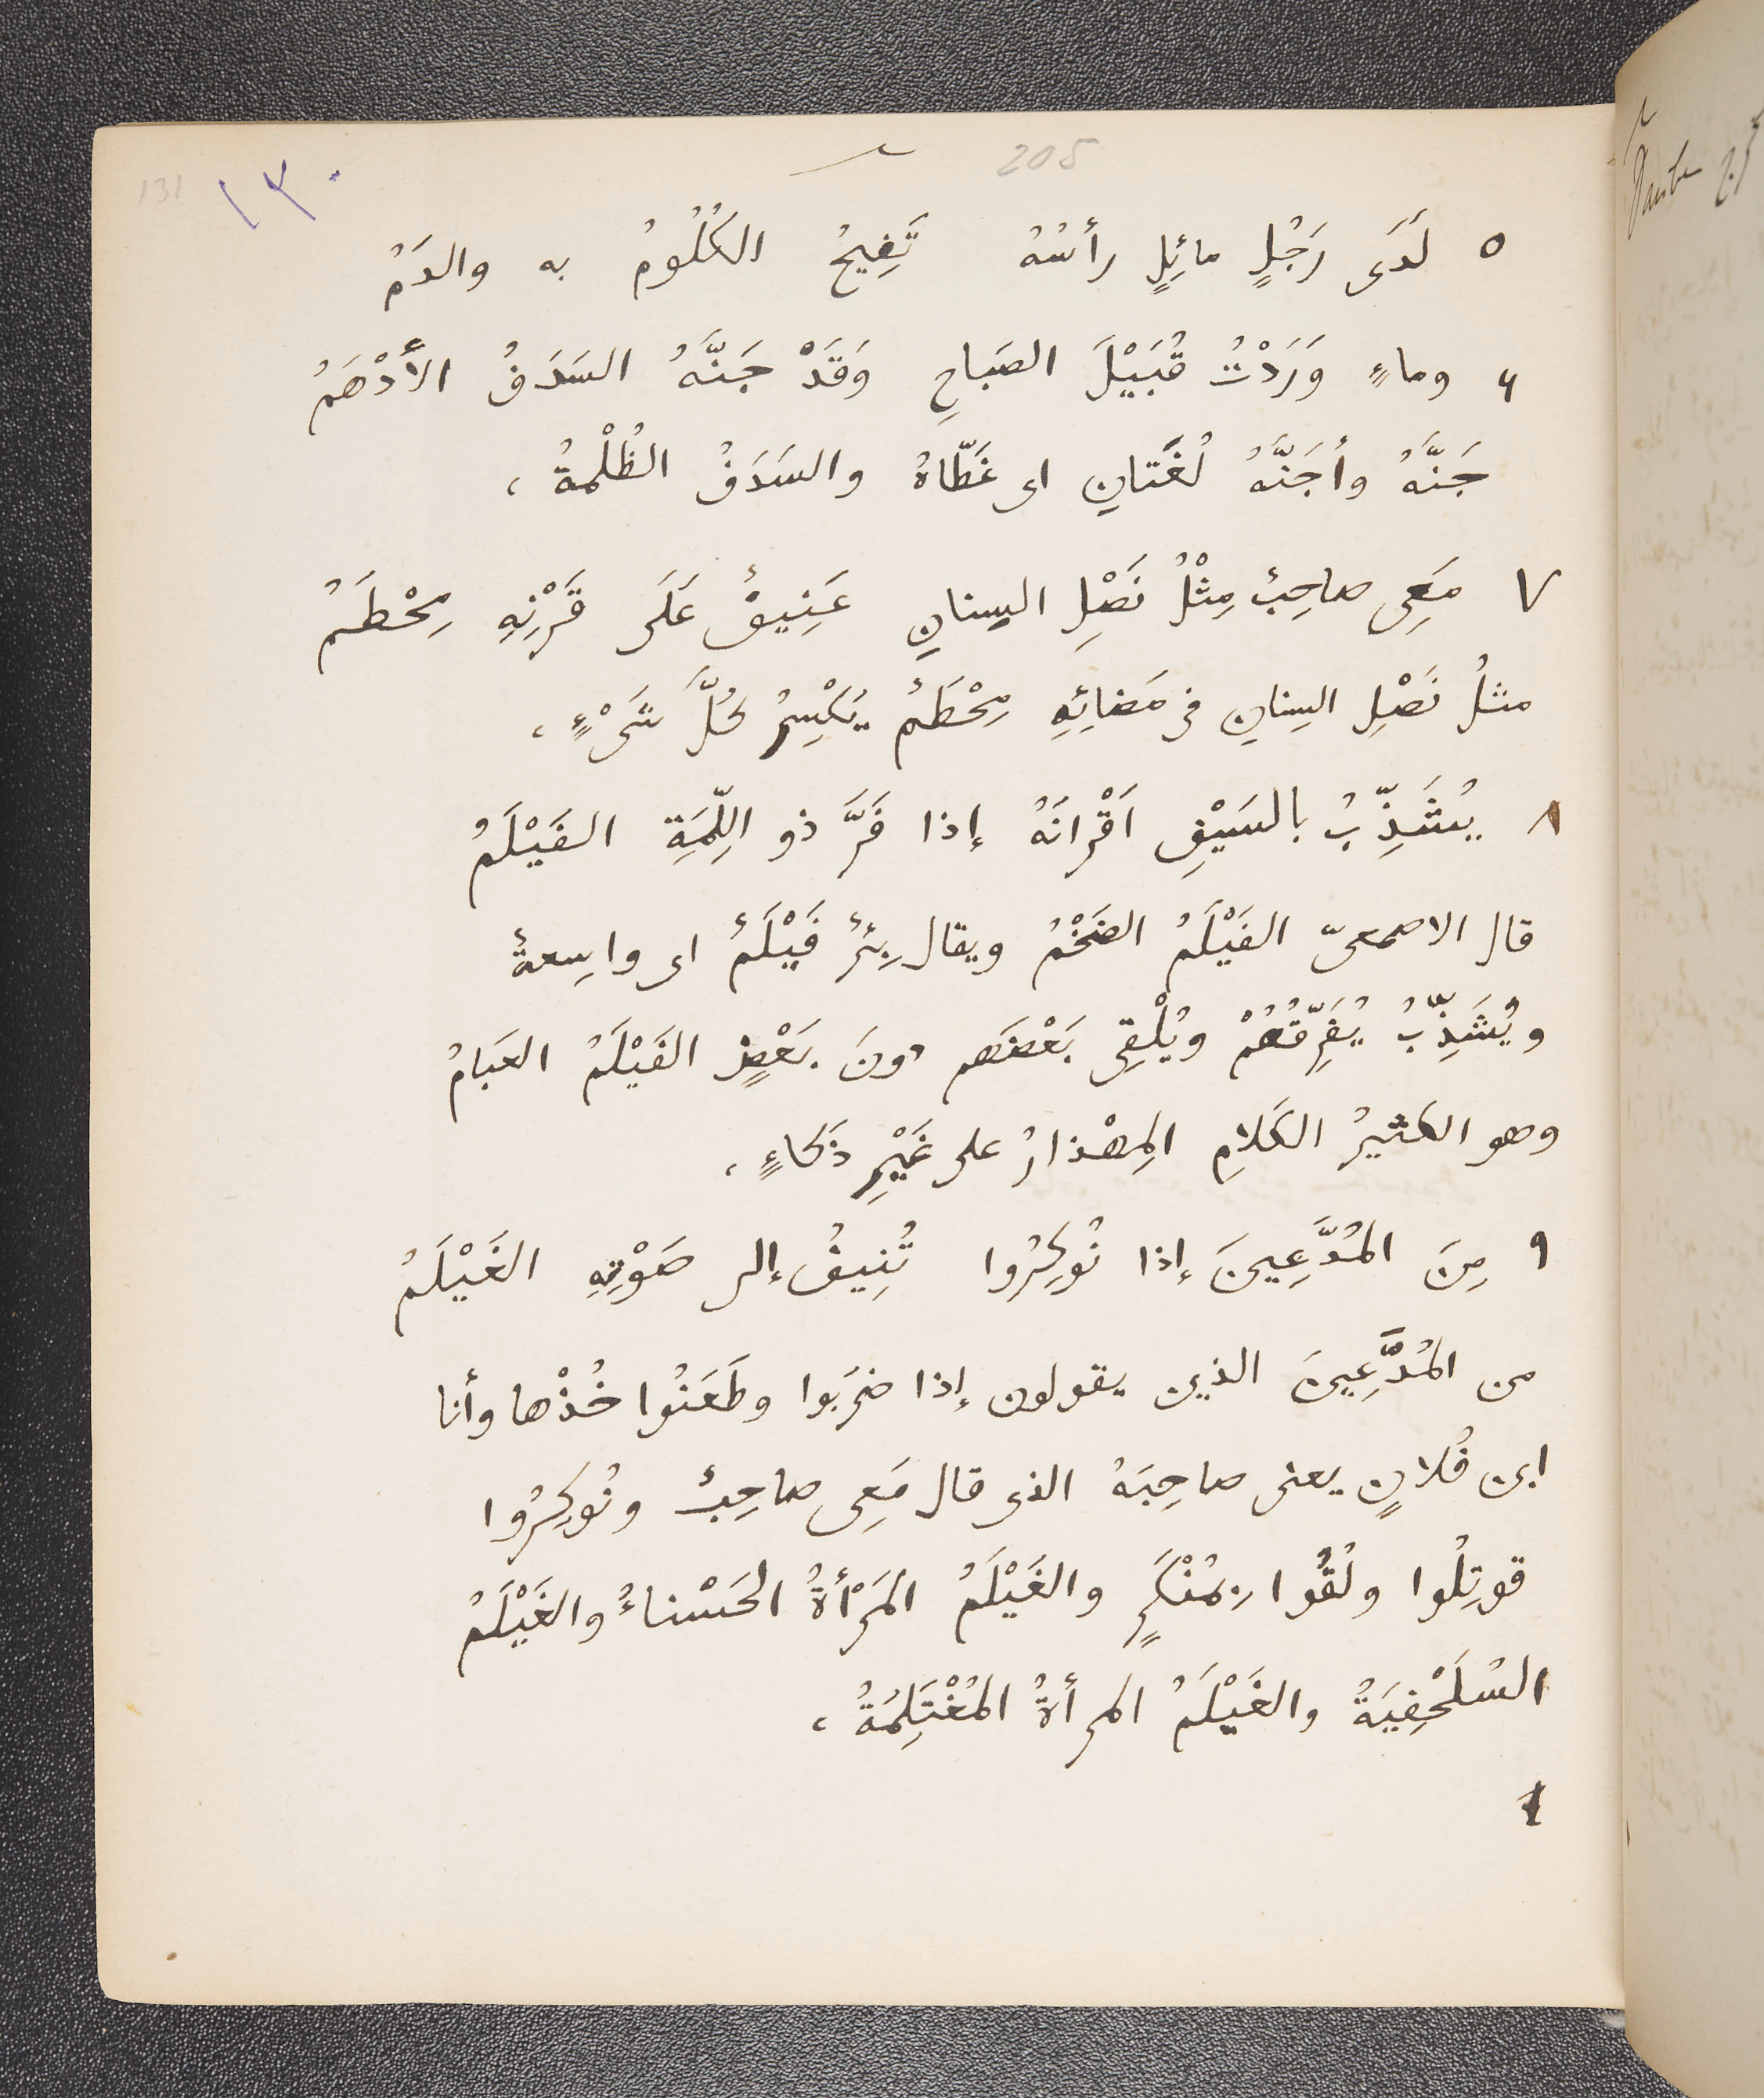 205
131 ١٣٠
٥ لَدَى رَجُلٍ مائِلٍ رأسُهُ تَفِيحُ الكُلُومُ به والدَمُ
٦ وماءٍ وَرَدْتُ قُبَيْلَ الصَباحِ وَقَدْ جَنَّهُ السَدَفُ الأَدْهَمُ
جَنَّهُ وأجَنَّهُ لُغَتانِ اى غَطّاهُ والسَدَفُ الظُلْمةُ ،
٧ مَعِى صاحِبٌ مِثْلُ نَصْلِ السِنانِ عَنِيفٌ عَلَى قَرْنِهِ مِحْطَمُ
مثلُ نَصْلِ السِنانِ فى مَضائِهِ مِحْطَمٌ يَكْسِرُ كُلَّ شَىْءٍ ،
٨ يُشَذِّبُ بالسَيْفِ اَقْرانَهُ إذا فَرَّ ذو اللِّمَةِ الفَيْلَمُ
قال الاصمعىّ الفَيْلَمُ الضَخْمُ ويقال بِئرٌ فَيْلَمٌ اى واسِعةٌ
ويُشَذِّبُ يُفَرِّقُهُمْ ويُلْقِى بَعْضَهم دونَ بَعْضٍ الفَيْلَمُ العَبامُ
وهو الكثيرُ الكَلامِ المِهْذارُ على غَيْرِ ذَكاءٍ ،
٩ مِنَ المُدَّعِينَ إذا نُوكِرُوا تُنِيفُ إلى صَوْتِهِ الغَيْلَمُ
من المُدَّعِينَ الذين يقولون إذا ضربَوا وطَعَنُوا خُذْها وأنا
ابن فُلانٍ يعنى صاحِبَهُ الذى قال مَعِى صاحِبٌ ونُوكِرُوا
قوتِلُوا ولُقُوا بِمُنْكَرٍ والغَيْلَمُ المَرْأةُ الحَسْناءُ والغَيْلَمُ
السُلَحْفِيَةُ والغَيْلَمُ المرأةُ المُغْتَلِمَةُ ،